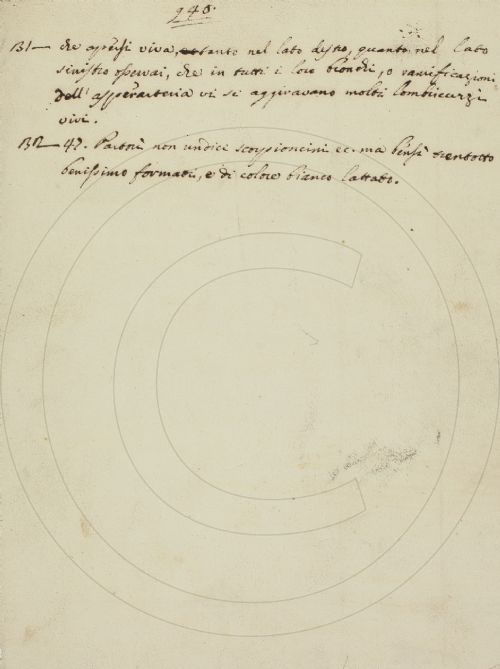 248.
131 — che apersi viva, tanto nel lato destro, quanto nel lato
sinistro osservai, che in tutti i loro bronchi, o ramificazioni
dell' asperarteria vi si aggiravano molti lombricuzzi
vivi.
132 — 47. Partorì non undici scorpioncini ec. ma bensì trentotto
benissimo formati, e di colore bianco lattato.